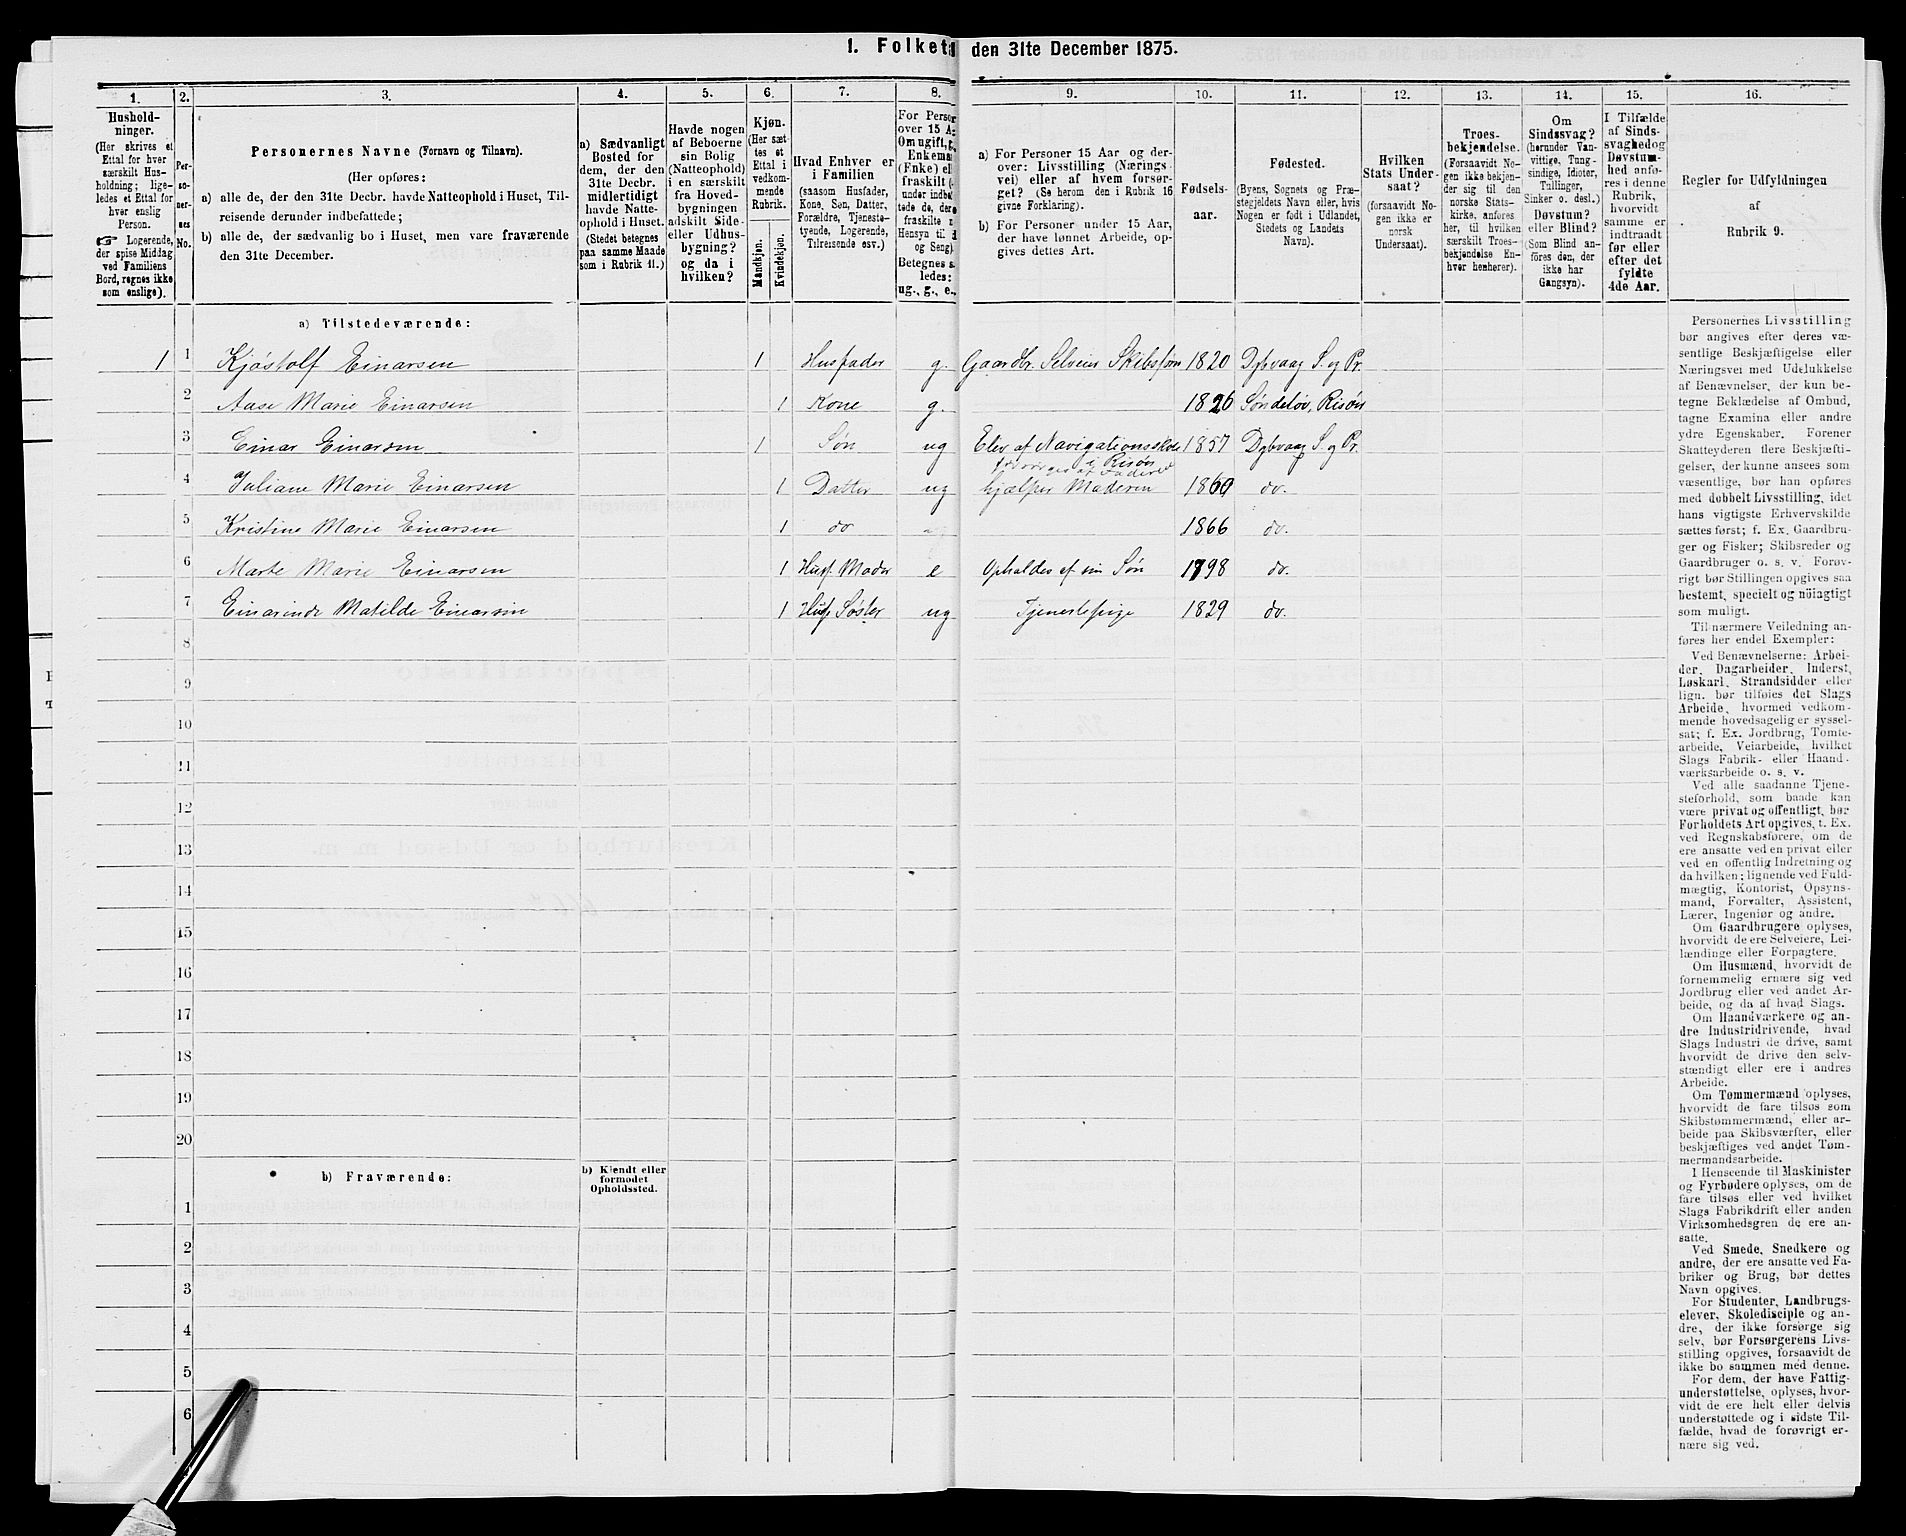 1. Folket den 31te December 1875.
1. 2. 3. 4. 5. 6. 7. 8. 9. 10. 11. 12. 13. 14. 15. 16.
Hushold-
ninger.
(Her skrives et
Ettal for hver
særskilt Hus-
holdning; lige-
ledes et Ettal for
hver enslig
Person.
☞ Logerende,
der spise Middag
ved Familiens
Bord, regnes ikke
som enslige).
Per-
so-
ner-
nes
No.
Personernes Navne (Fornavn og Tilnavn).
(Her opføres:
a) alle de, der den 31te Decbr. havde Natteophold i Huset, Til-
reisende derunder indbefattede;
b) alle de, der sædvanlig bo i Huset, men vare fraværende
den 31te December.
a) Sædvanligt
Bosted for
dem, der den
31te Decbr.
midlertidigt
havde Natte-
ophold i Huset.
(Stedet betegnes
paa samme Maade
som i Rubrik 11.)
Havde nogen
af Beboerne
sin Bolig
(Natteophold)
i en særskilt
fra Hoved-
bygningen
adskilt Side-
eller Udhus-
bygning?
og da i
hvilken?
Kjøn.
(Her sæt-
tes et
Ettal i
vedkom-
mende
Rubrik.
Mandkjøn.
Kvindekjøn.
Hvad Enhver er
i Familien
(saasom Husfader,
Kone, Søn, Datter,
Forældre, Tjeneste-
tyende, Logerende,
Tilreisende osv.)
For Person
over 15 A
Om ugift, g
Enkema
(Enke) el
fraskilt
under indbe
tede de, der
fraskilte
Hensyn til
og Seng).
Betegnes s
ledes:
ug., g., e.,
a) For Personer 15 Aar og der-
over: Livsstilling (Nærings-
vei) eller af hvem forsør-
get? (Se herom den i Rubrik 16
givne Forklaring).
b) For Personer under 15 Aar,
der have lønnet Arbeide, op-
gives dettes Art.
Fødsels-
aar.
Fødested.
(Byens, Sognets og Præ-
stegjeldets Navn eller, hvis
Nogen er født i Udlandet,
Stedets og Landets
Navn).
Hvilken
Stats Under-
saat?
(forsaavidt No-
gen ikke er
norsk
Undersaat).
Troes-
bekjendelse.
(Forsaavidt No-
gen ikke bekjen-
der sig til den
norske Stats-
kirke, anføres
her, til hvilken
særskilt Troes-
bekjendelse En-
hver henhører).
Om
Sindssvag?
(herunder Van-
vittige, Tung-
sindige, Idioter,
Tullinger,
Sinker o. desl.)
Døvstum?
eller Blind?
(Som Blind an-
føres den, der
ikke har
Gangsyn).
I Tilfælde
af Sinds-
svaghed og
Døvstum-
hed anfø-
res i denne
Rubrik,
hvorvidt
samme er
indtraadt
før eller
efter det
fyldte
4de Aar.
Regler for Udfyldningen
af
Rubrik 9.
a) Tilstedeværende:
1 1 Kjøstolf Einarsen 1 Husfader g. Gaardbr. Selveier 1820 Dybvaag S. og Pr.
2 Aase Marie Einarsen 1 Kone g. 1826 Søndeløv, Risør
3 Einar Einarsen 1 Søn ug Elev af Navigationsskole 1857 Dybvaag S. og Pr.
i Risør
forsørges af Faderen
4 Juliane Marie Einarsen 1 Datter ug hjælper Moderen 1860 do.
5 Kristine Marie Einarsen 1 do 1866 do.
6 Marte Marie Einarsen 1 Husf. Moder e Opholdes af sin Søn 1798 do.
7 Einarinde Matilde Einarsen 1 Husf Søster ug Tjenestepige 1829 do.
8
9
10
11
12
13
14
15
16
17
18
19
20
b) Fraværende:
b) Kjendt eller
formodet
Opholdssted.
1
2
3
4
5
6
Personernes Livsstilling
bør angives efter deres væ-
sentlige Beskjæftigelse eller
Næringsvei med Udelukkelse
af Benævnelser, der kun be-
tegne Beklædelse af Ombud,
tagne Examina eller andre
ydre Egenskaber. Forener
Skatteyderen flere Beskjæfti-
gelser, der kunne ansees som
væsentlige, bør han opføres
med dobbelt Livsstilling, idet
hans vigtigste Erhvervskilde
sættes først; f. Ex. Gaardbru-
ger og Fisker; Skibsreder og
Gaardbruger o. s. v. Forøv-
rigt bør Stillingen opgives saa
bestemt, specielt og nöiagtigt
som muligt.
Til nærmere Veiledning an-
føres her endel Exempler:
Ved Benævnelserne: Arbei-
der, Dagarbeider, Inderst,
Løskarl, Strandsidder eller
lign. bør tilføies det Slags
Arbeide, hvormed vedkom-
mende hovedsagelig er syssel-
sat; f. Ex. Jordbrug, Tomte-
arbeide, Veiarbeide, hvilket
Slags Fabrik- eller Haand-
værksarbeide o. s. v.
Ved alle saadanne Tjene-
steforhold, som baade kan
være privat og offentligt, bør
Forholdets Art opgives, t. Ex.
ved Regnskabsførere, om de
ere ansatte ved en privat eller
ved en offentlig Indretning og
da hvilken; lignende ved Fuld-
mægtig, Kontorist, Opsyns-
mand, Forvalter, Assistent,
Lærer, Ingeniør og andre.
Om Gaardbrugere oplyses,
hvorvidt de ere Selveiere, Lei-
lændinge eller Forpagtere.
Om Husmænd, hvorvidt de
fornemmelig ernære sig ved
Jordbrug eller ved andet Ar-
beide, og da af hvad Slags.
Om Haandværkere og an-
dre Industridrivende, hvad
Slags Industri de drive, samt
hvorvidt de drive den selv-
stændigt eller ere i andres
Arbeide.
Om Tømmermænd oplyses,
hvorvidt de fare tilsøs som
Skibstømmermænd, eller ar-
beide paa Skibsværfter, eller
beskjæftiges ved andet Tøm-
mermandsarbeide.
I Henseende til Maskinister
og Fyrbødere oplyses, om de
fare tilsøs eller ved hvilket
Slags Fabrikdrift eller anden
Virksomhedsgren de ere an-
satte.
Ved Smede, Snedkere og
andre, der ere ansatte ved Fa-
briker og Brug, bør dettes
Navn opgives.
For Studenter, Landbrugs-
elever, Skoledisciple og an-
dre, der ikke forsørge sig
selv, bør Forsørgerens Livs-
stilling opgives, forsaavidt de
ikke bo sammen med denne.
For dem, der have Fattig-
understøttelse, oplyses, hvor-
vidt de ere helt eller delvis
understøttede og i sidste Til-
fælde, hvad de forøvrigt er-
nære sig ved.